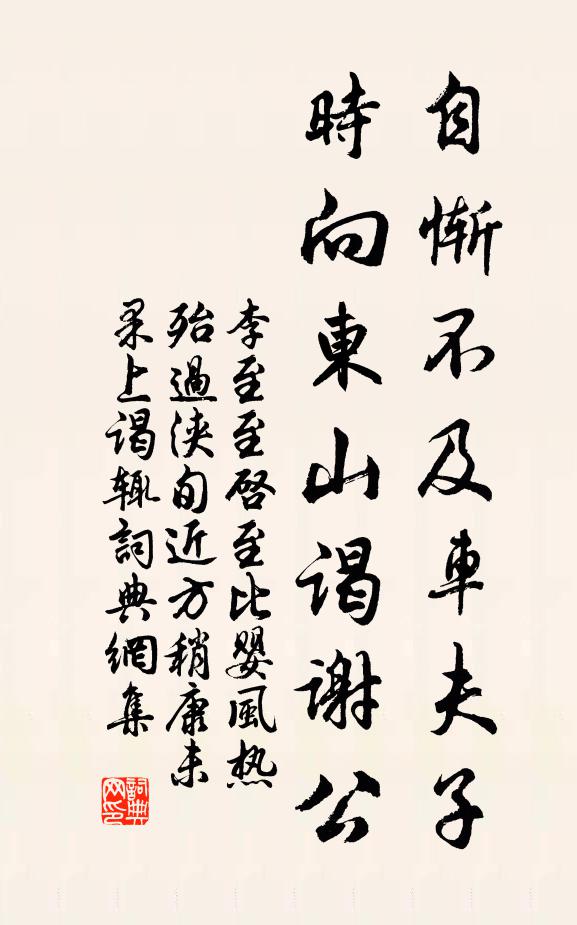 自慚不及車夫子
時向東山謁謝公
李至至啓至比嬰風熱
殆過浹旬近方稍康未
果上謁輒詞典網集
詞典
网印